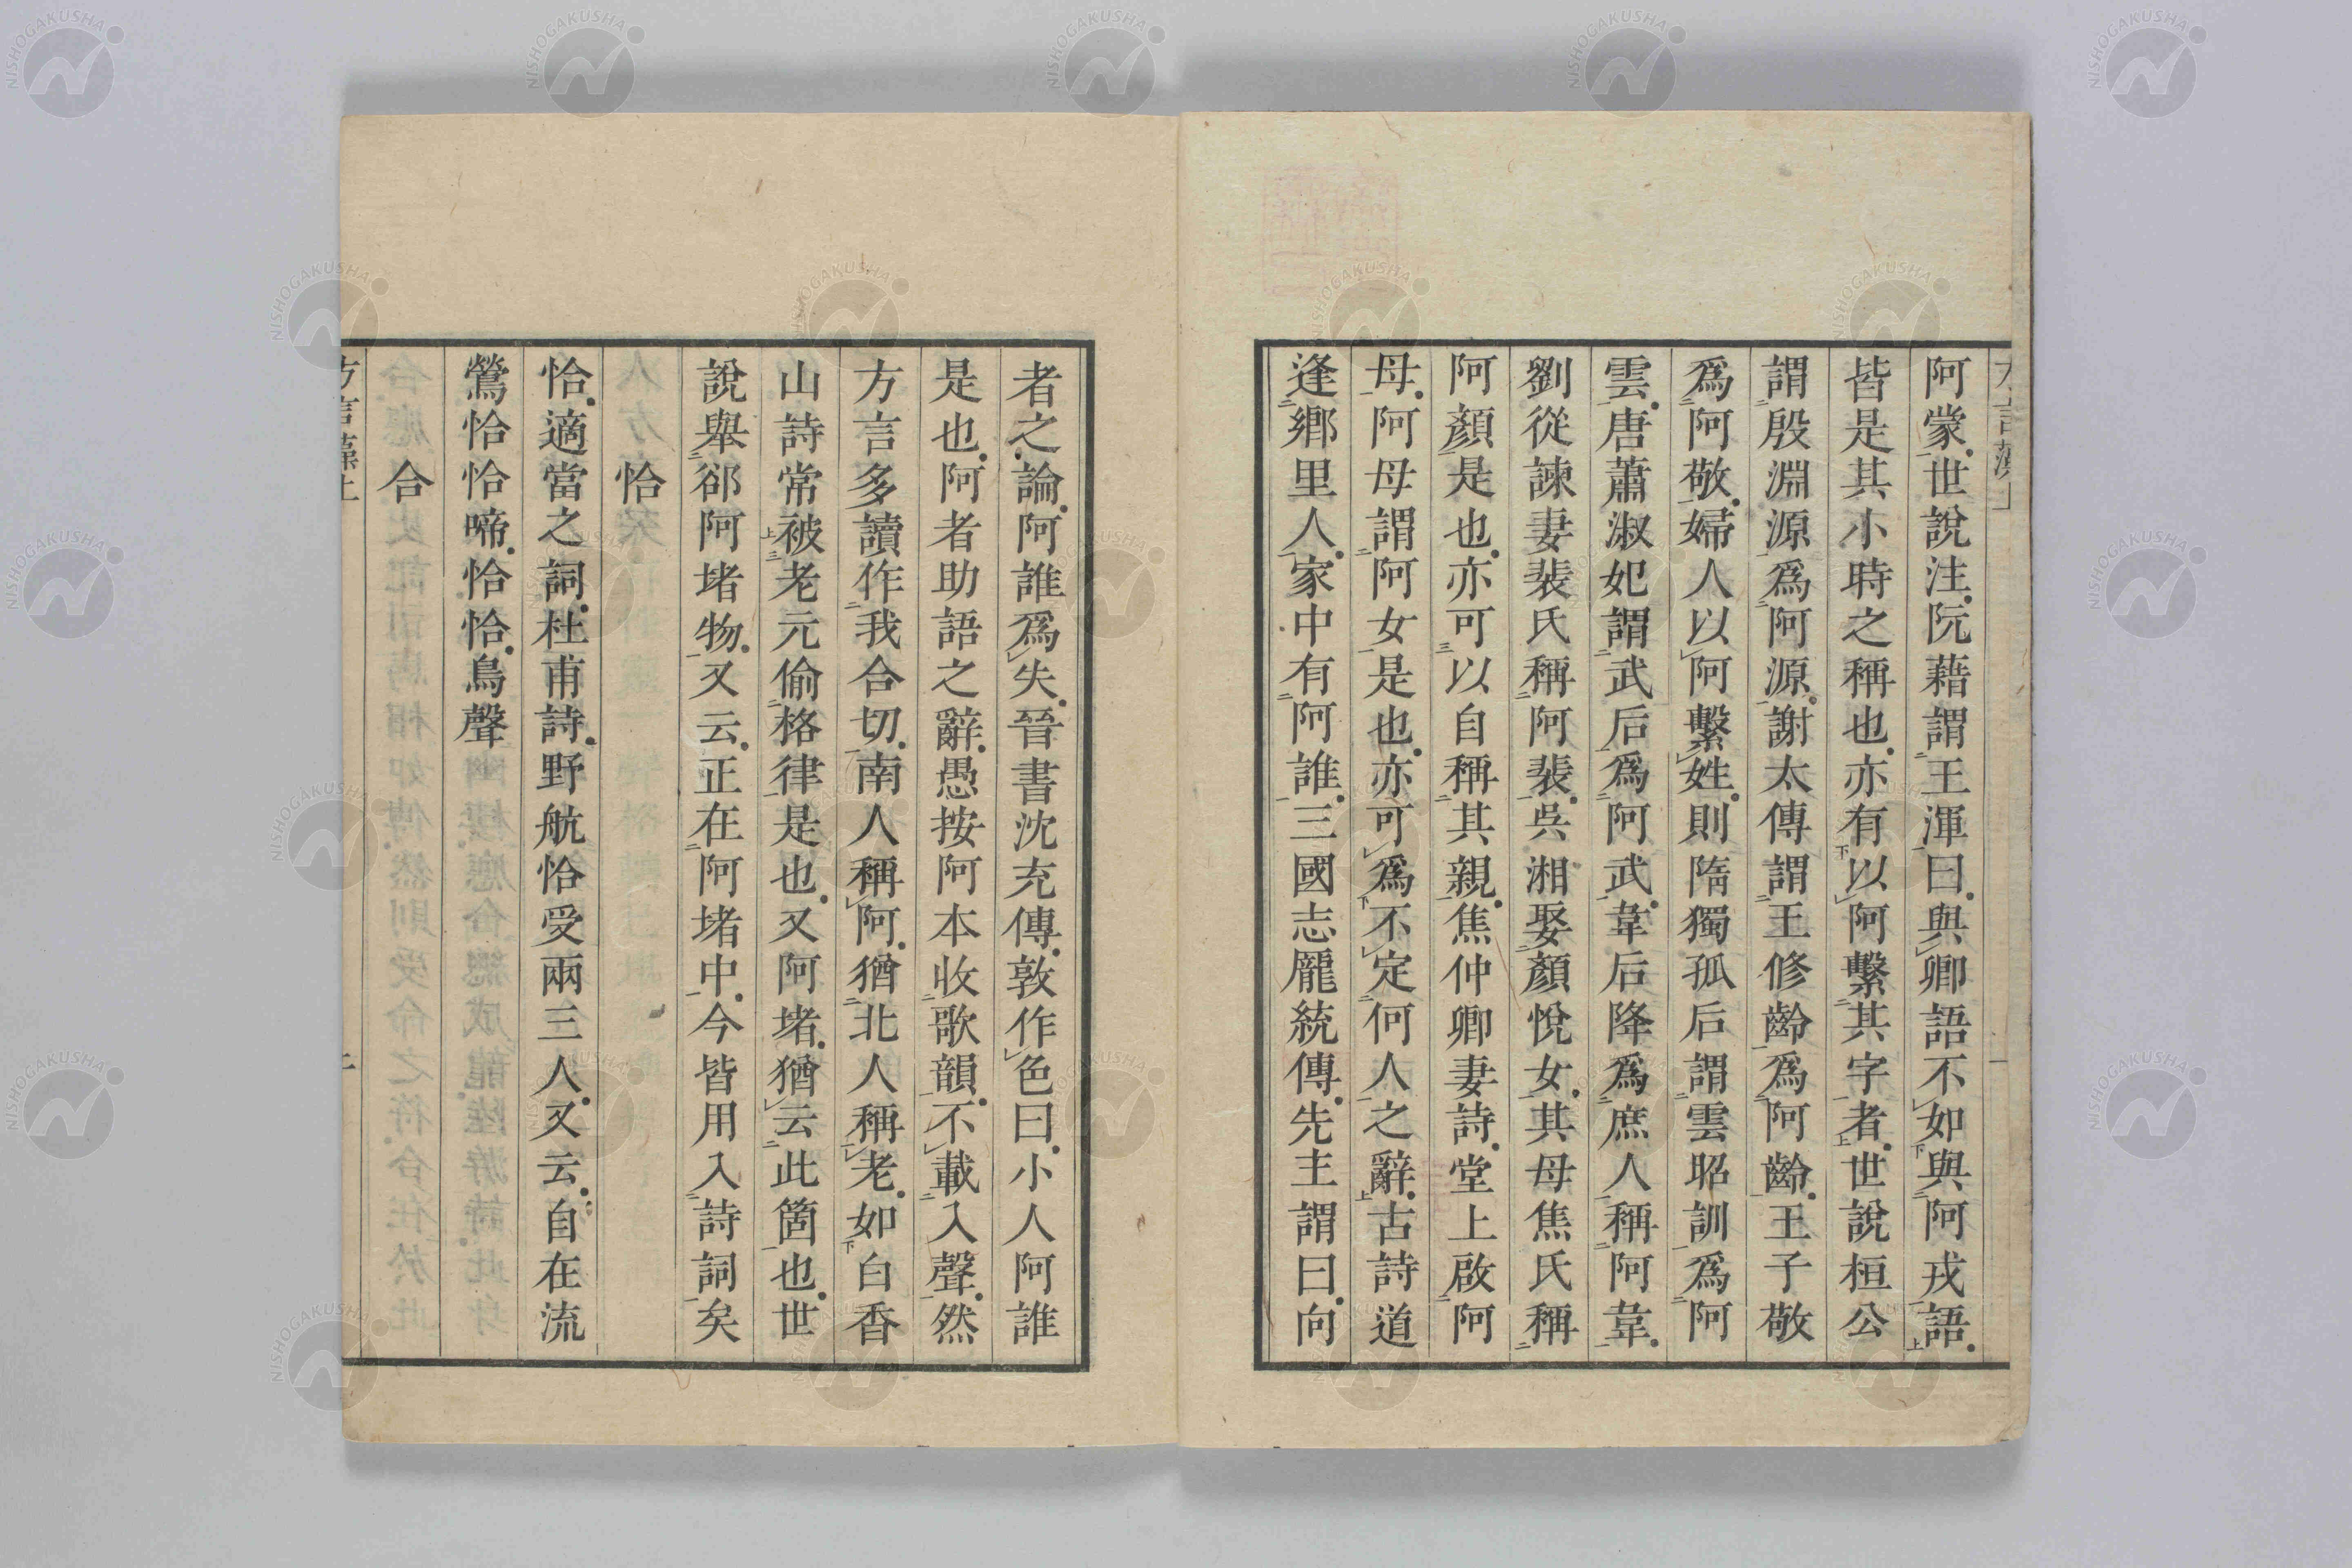 阿蒙世說注阮藉謂王渾曰與卿語不如與阿戎語
皆是其小時之稱也亦有以阿繫其字者世說桓公
謂殷淵源爲阿源謝太傅謂王修齡爲阿齡王子敬
爲阿敬婦人以阿繫姓則隋獨孤后謂雲昭訓爲阿
雲唐蕭淑妃謂武后爲阿武韋后降爲庶人稱阿韋
劉從諫妻裴氏稱阿裴吳湘娶顏悅女其母焦氏稱
阿顏是也亦可以自稱其親焦仲卿妻詩堂上啟阿
母阿母謂阿女是也亦可爲不定何人之辭古詩道
逢鄉里人家中有阿誰三國志龐統傳先主謂曰向
者之論阿誰爲失晉書沈充傳敦作色曰小人阿誰
是也阿者助語之辭愚按阿本收歌韻不載入聲然
方言多讀作我合切南人稱阿猶北人稱老如白香
山詩常被老元偷格律是也又阿堵猶云此箇也世
說舉卻阿堵物又云正在阿堵中今皆用入詩詞矣
恰
恰適當之詞杜甫詩野航恰受兩三人又云自在流
鶯恰恰啼恰恰鳥聲
合
方言藻上